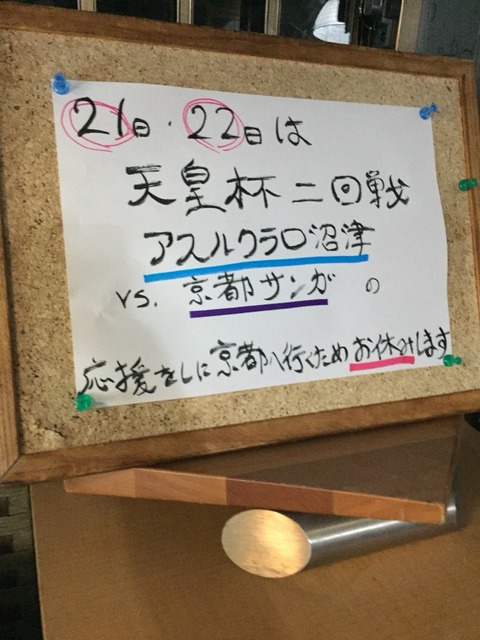 21日・22日は
天皇杯二回戦
アスルクラロ沼津
vs. 京都サンガ の
応援をしに京都へ行くためお休みします